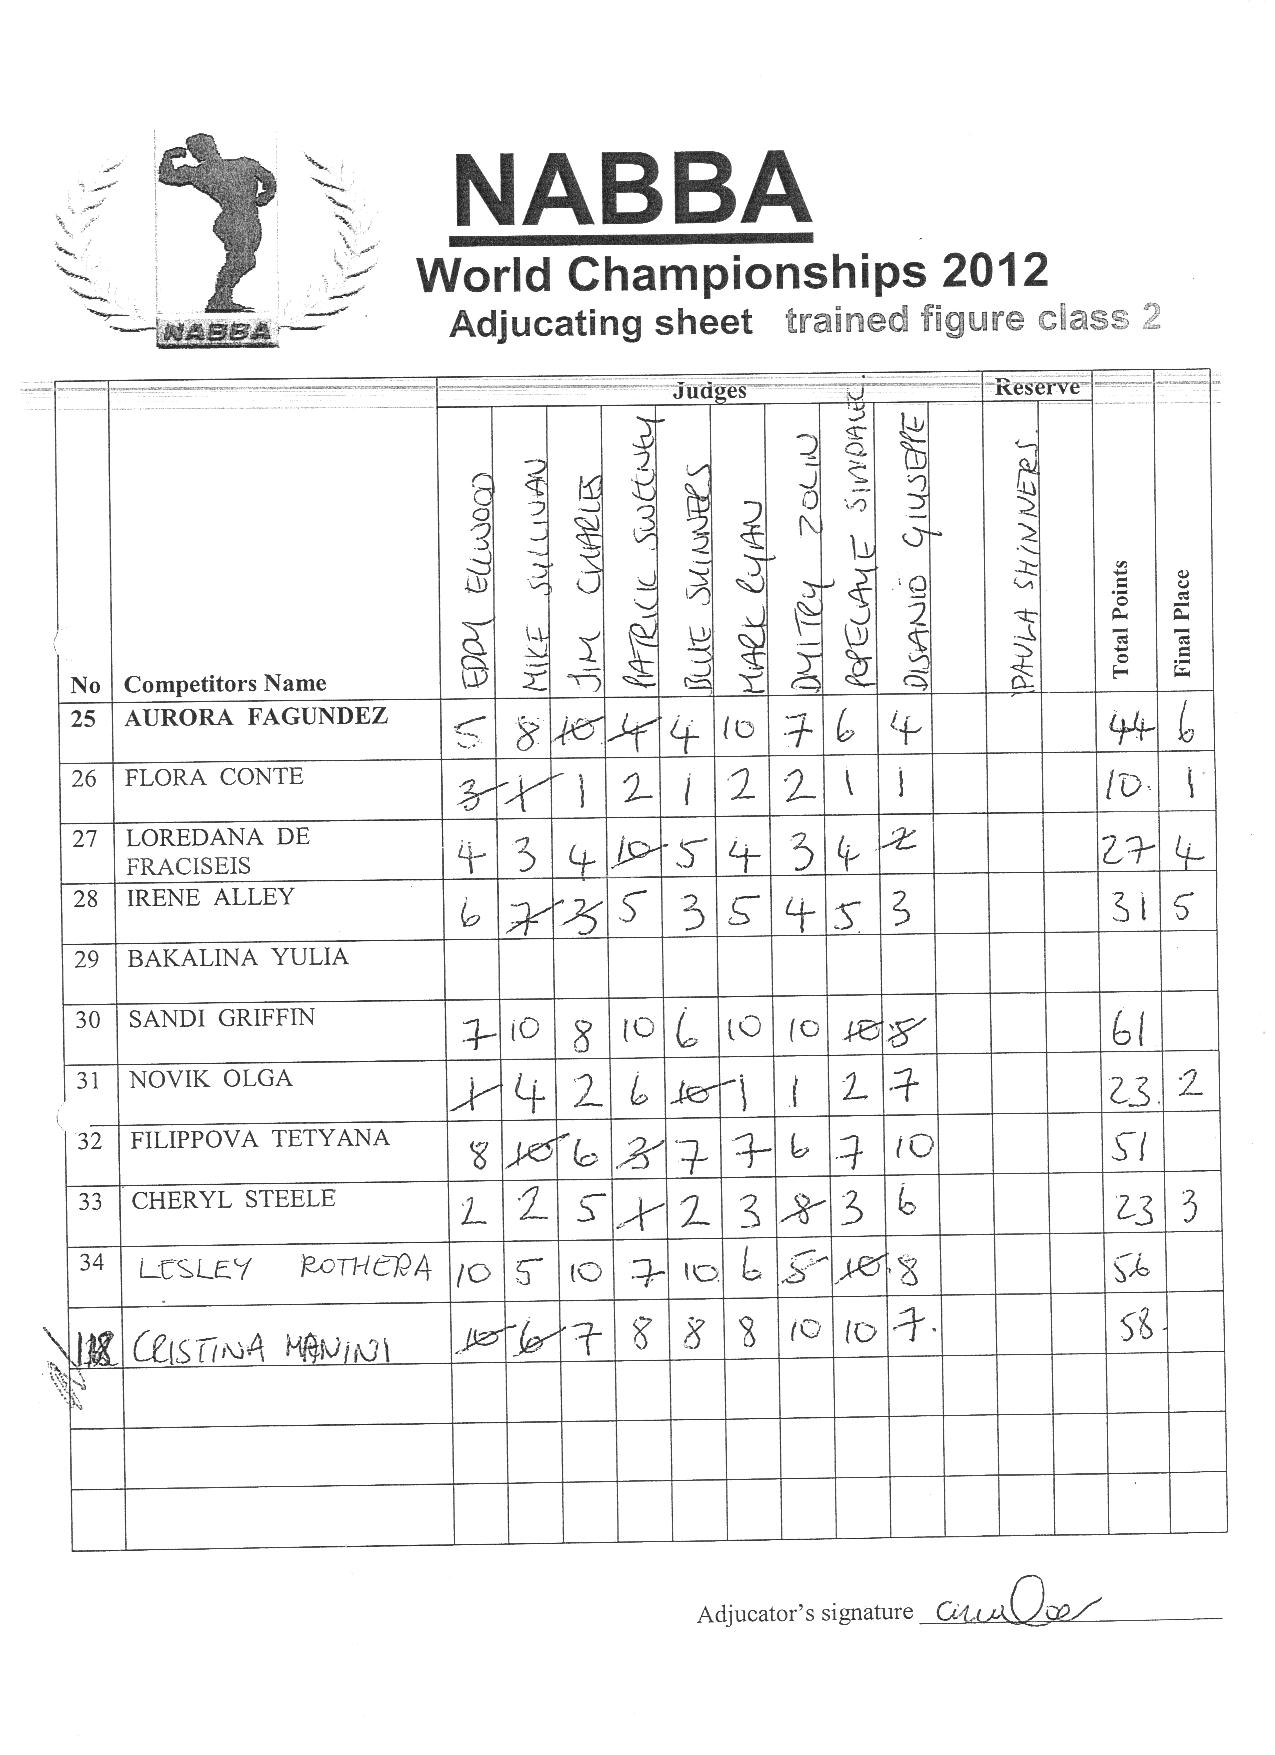 NABBA
NABBA
World Championships 2012
Adjucating sheet trained figure class 2
Judges Reserve
No Competitors Name EDDY ELLWOOD MIKE SULLIVAN JIM CHARLES PATRICK SWEENEY BLUE SHINNERS MARK RYAN DMITRY ZOLIN POPELAYE SINDALEC DISANIO GIUSEPPE PAULA SHINNERS Total Points Final Place
25 AURORA FAGUNDEZ 5 8 10 4 4 10 7 6 4 44 6
26 FLORA CONTE 3 1 1 2 1 2 2 1 1 10. 1
27 LOREDANA DE 4 3 4 10 5 4 3 4 2 27 4
FRACISEIS
28 IRENE ALLEY 6 7 3 5 3 5 4 5 3 31 5
29 BAKALINA YULIA
30 SANDI GRIFFIN 7 10 8 10 6 10 10 10 8 61
31 NOVIK OLGA 1 4 2 6 10 1 1 2 7 23. 2
32 FILIPPOVA TETYANA 8 10 6 3 7 7 6 7 10 51
33 CHERYL STEELE 2 2 5 1 2 3 8 3 6 23 3
34 LESLEY ROTHERA 10 5 10 7 10 6 5 10 8 56
118 CRISTINA MANINI 10 6 7 8 8 8 10 10 7. 58.
Adjucator's signature